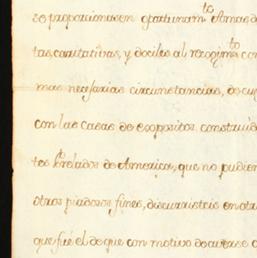 se proporcionasen oportunam.to Amas d
tas, caritativas, y dociles al recogim.to con
mas necesarias circunstancias, do cu
con las casas de expositos, construid
tes Prelados de America, que no pudien
otros piadosos fines, discurristeis en otr
que fué el de que con motivo de